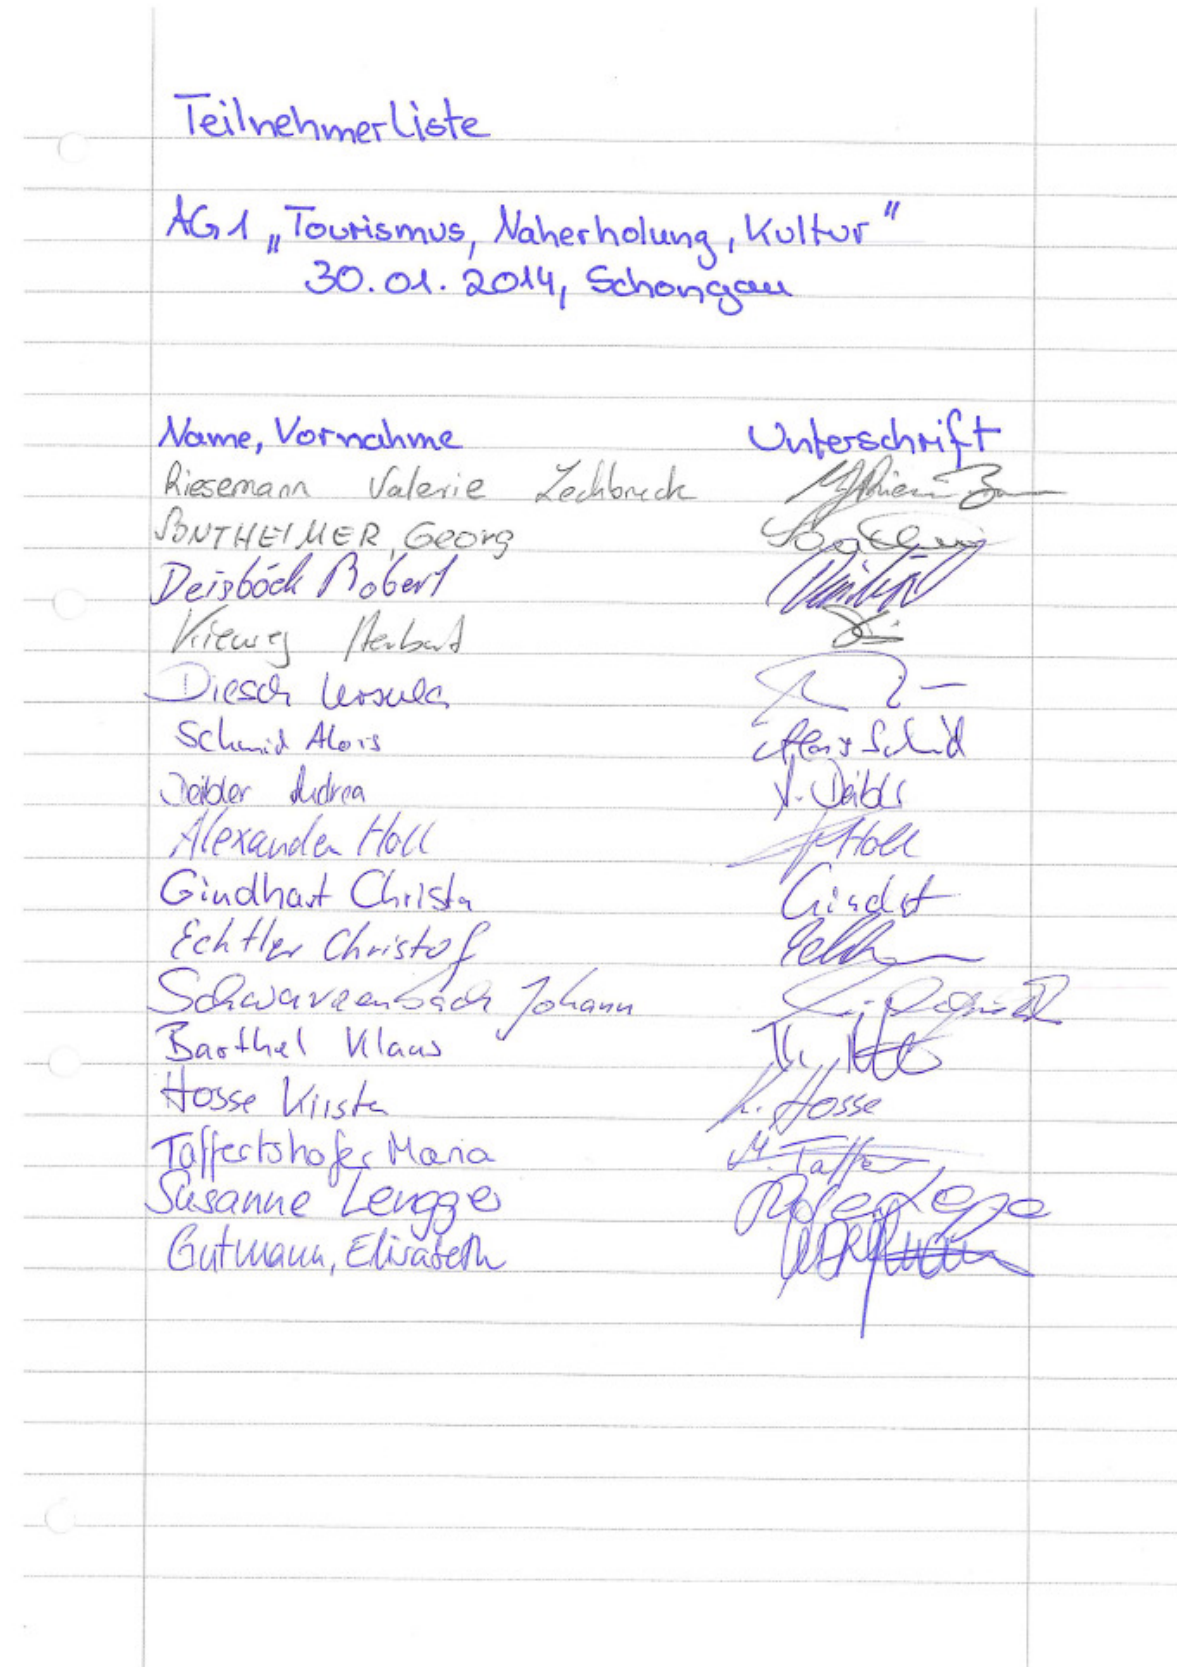 Teilnehmerliste
AG1 „Tourismus, Naherholung, Kultur"
30.01.2014, Schongau
Name, Vornahme Unterschrift
Riesemann Valerie Lechbruck
SONTHEIMER, Georg
Deisböck Robert
Vieweg Herbert
Diesch Ursula
Schmid Alois Alois Schmid
Deibler Andrea A. Deibler
Alexander Holl AHoll
Gindhart Christa
Echtler Christof
Schwarzenbach Johann
Barthel Klaus
Hosse Kirsten K. Hosse
Taffertshofer Maria M. Taffer
Susanne Lengger
Gutmann, Elisabeth